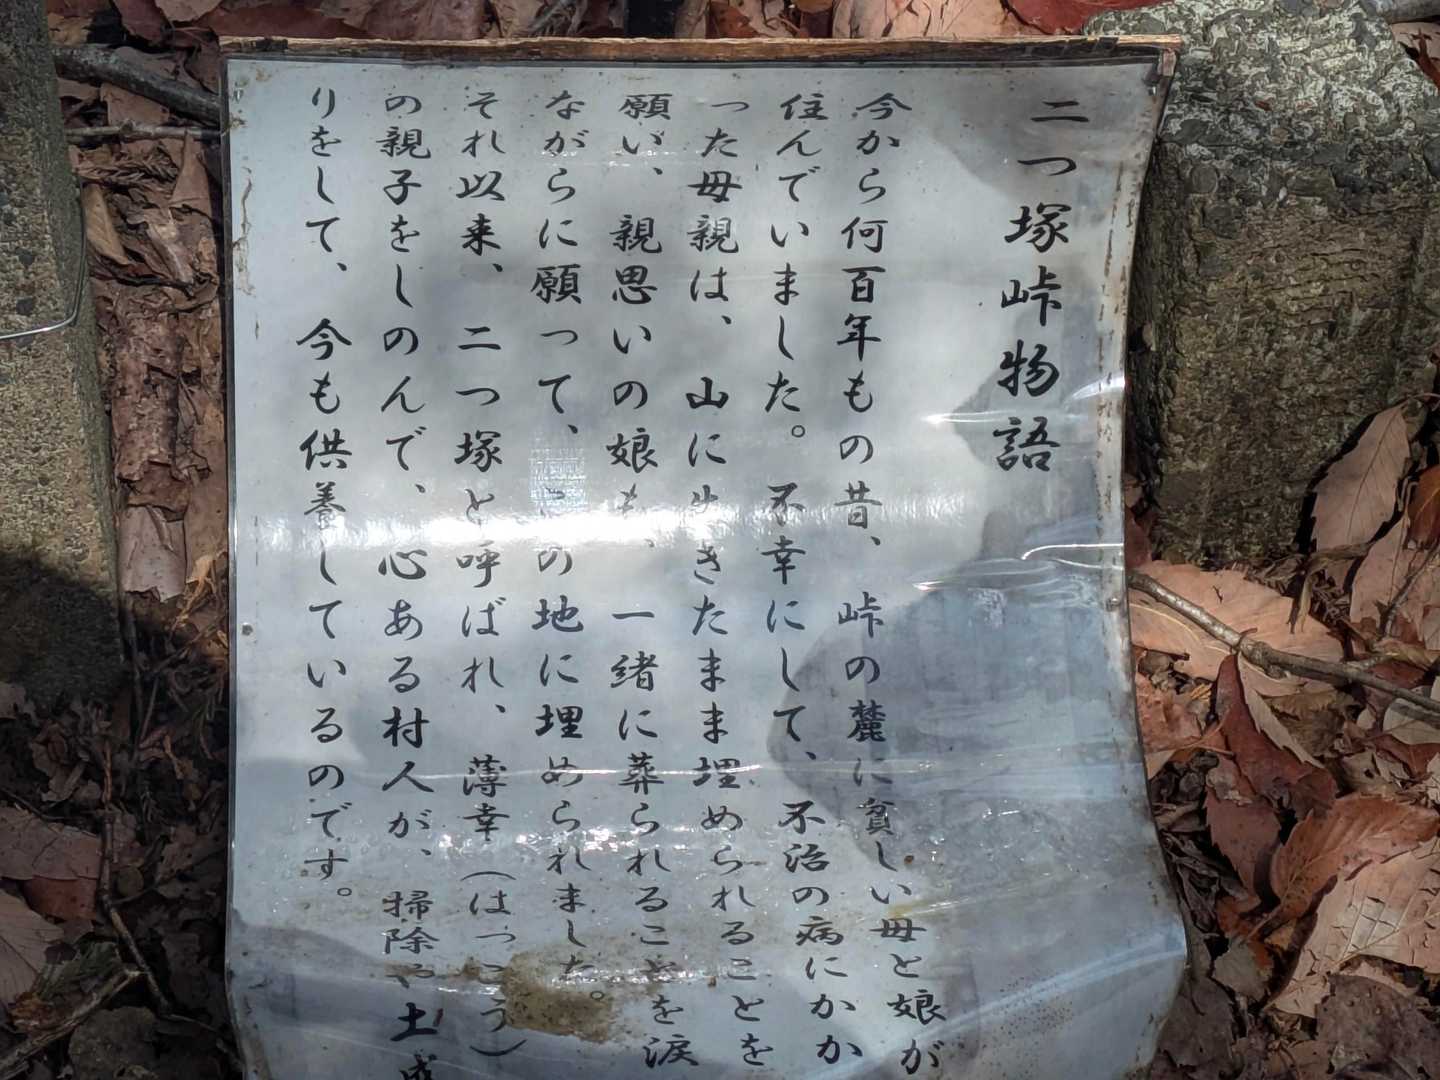 二つ塚峠物語
今から何百年もの昔、峠の麓に貧しい母と娘が
住んでいました。不幸にして、不治の病にかか
った母親は、山に生きたまま埋められることを
願い、親思いの娘も、一緒に葬られることを涙
ながらに願って、この地に埋められました。
それ以来、二つ塚と呼ばれ、薄幸(はっこう)
の親子をしのんで、心ある村人が、掃除や土盛
りをして、今も供養しているのです。